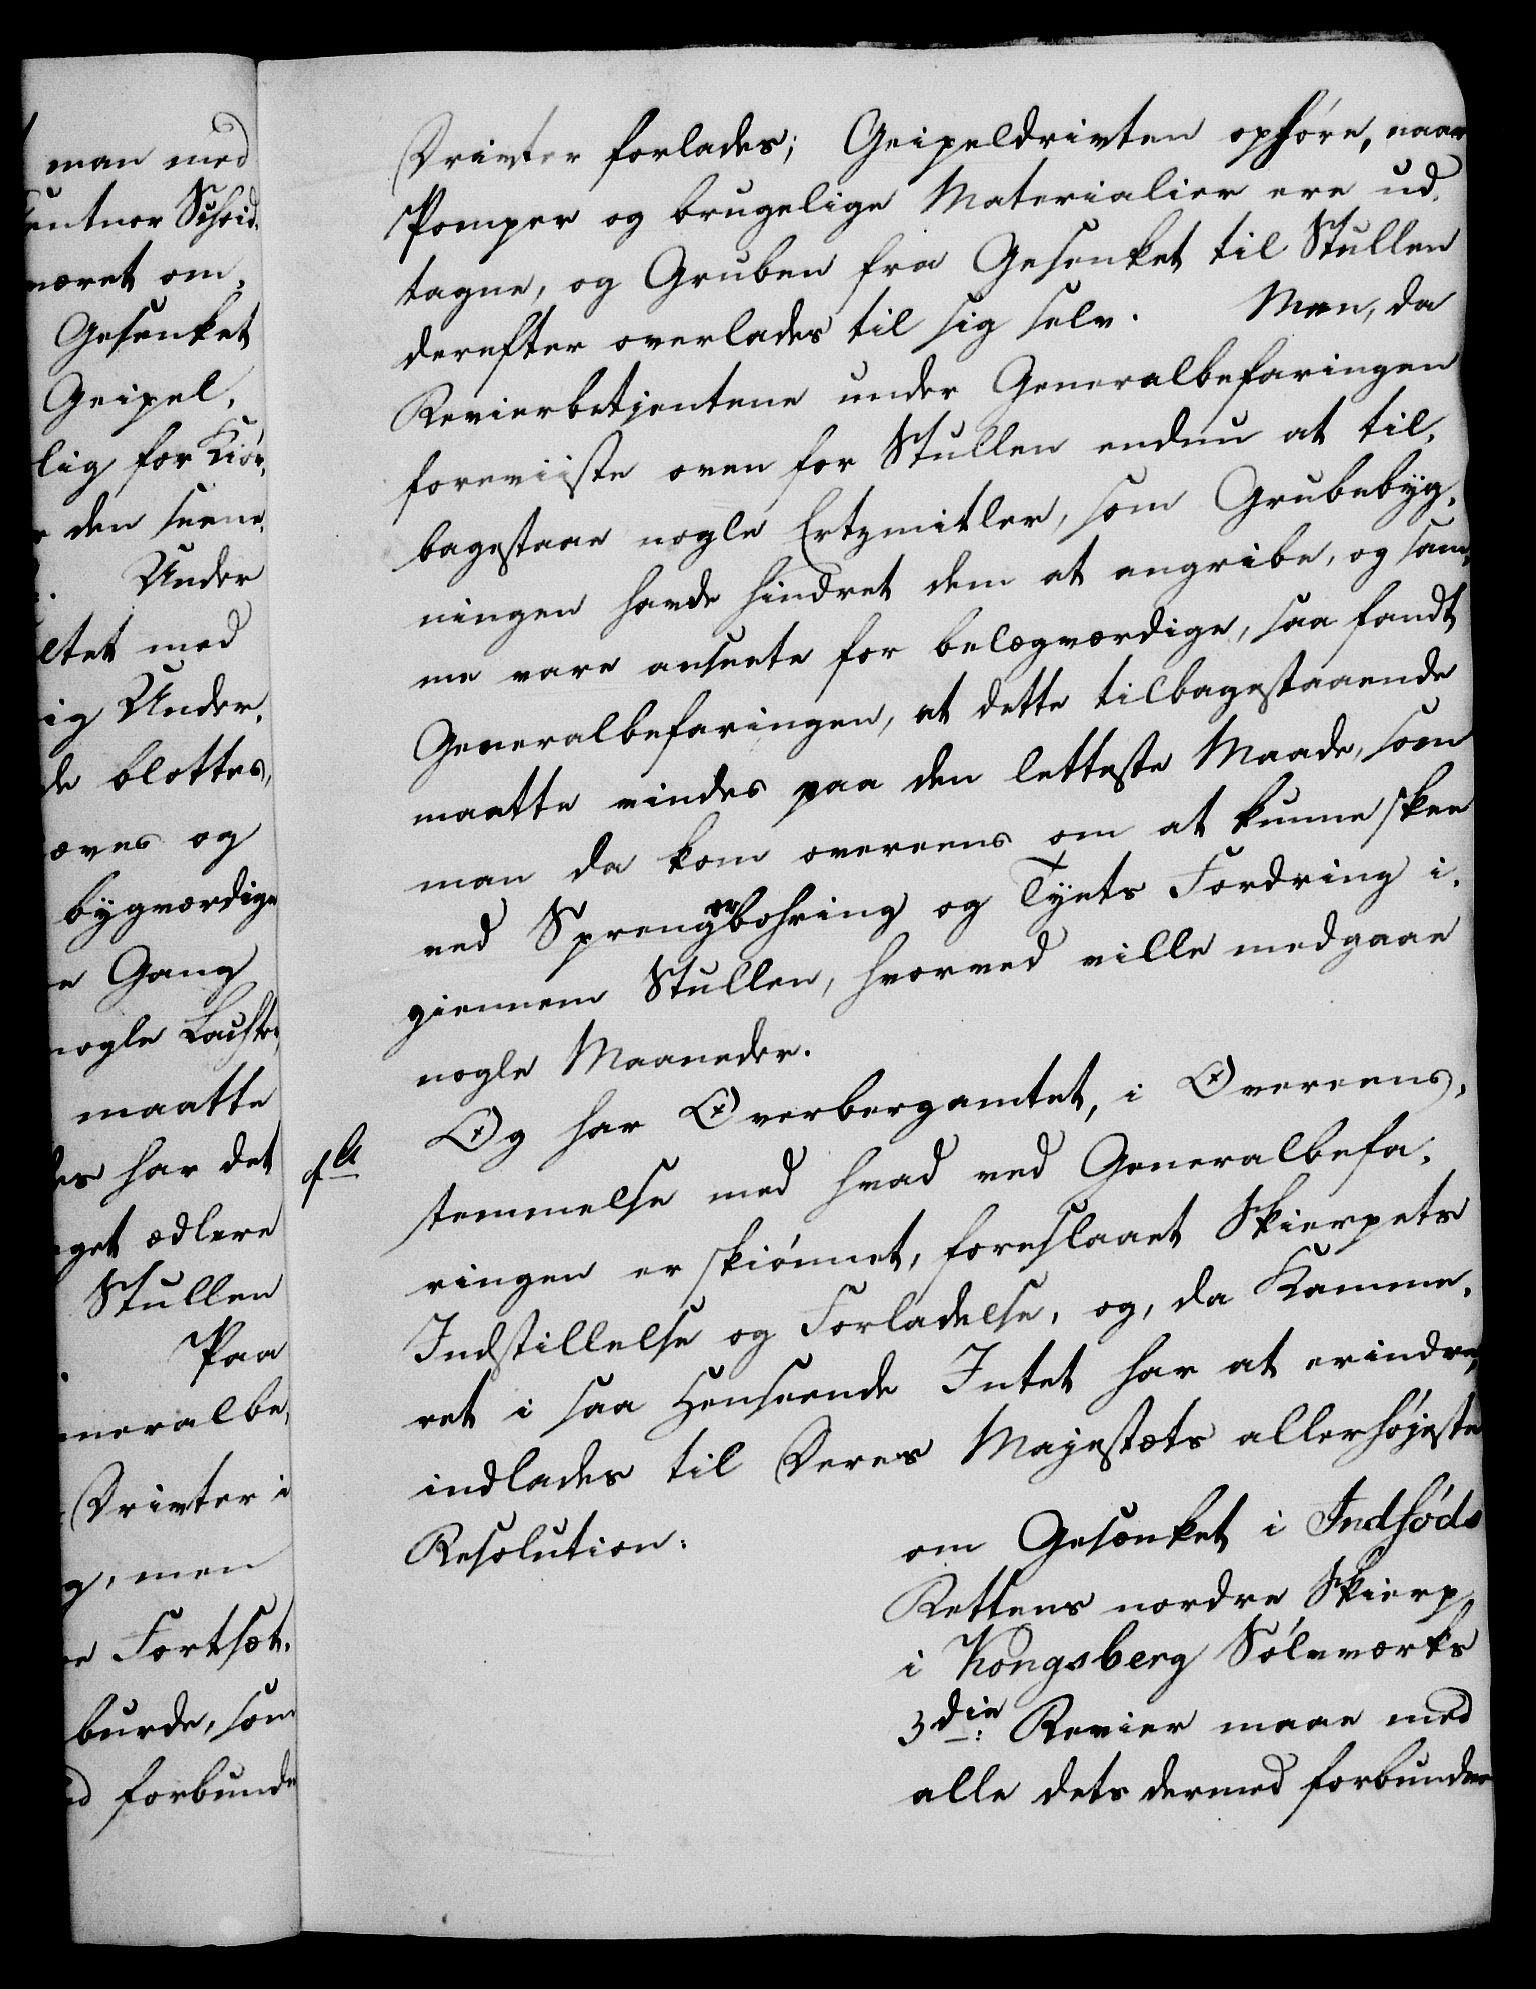 man med
entner Scheid,
været om,
Gesenket
Geipel,
lig for Kiör,
den seene,
Under
ltet med
ig Under,
de blottes,
æves og
bygværdige
e Gang
nogle Lachter,
maatte
es har det
get ædlere
Stullen
Paa
neralbe,
Drivter i
g, men
e Fortsæt,
burde, som
d forbundne
Drivter forlades; Geipeldrivten ophöre, naar
Pomper og brugelige Materialier ere ud,
tagne, og Gruben fra Gesenket til Stullen
derefter overlades til sig selv. Men, da
Revierbetjentene under Generalbefaringen
foreviiste oven for Stullen endnu at til,
bagestaae nogle Ertzmitler, som Grubebyg,
ningen havde hindret dem at angribe, og sam,
me vare anseete for belægværdige, saa fandt
Generalbefaringen, at dette tilbagestaaende
maatte vindes paa den letteste Maade, som
man da kom overeens om at kunne skee
ved Sprengerbohring og Tyets Fordring i,
giennem Stullen, hvorved ville medgaae
nogle Maaneder.
Og har Overbergamtet, i Overeens,
stemmelse med hvad ved Generalbefa,
ringen er skiönnet, foreslaaet Skierpets
Indstillelse og Forladelse, og, da Kamme,
ret i saa Henseende Intet har at erindre,
indlades til Deres Majestæts allerhöjeste
Resolution:
om Gesænket i Indföds
Rettens nordre Skierp
i Kongsberg Sölvværks
3die: Revier maae med
alle dets dermed forbundne